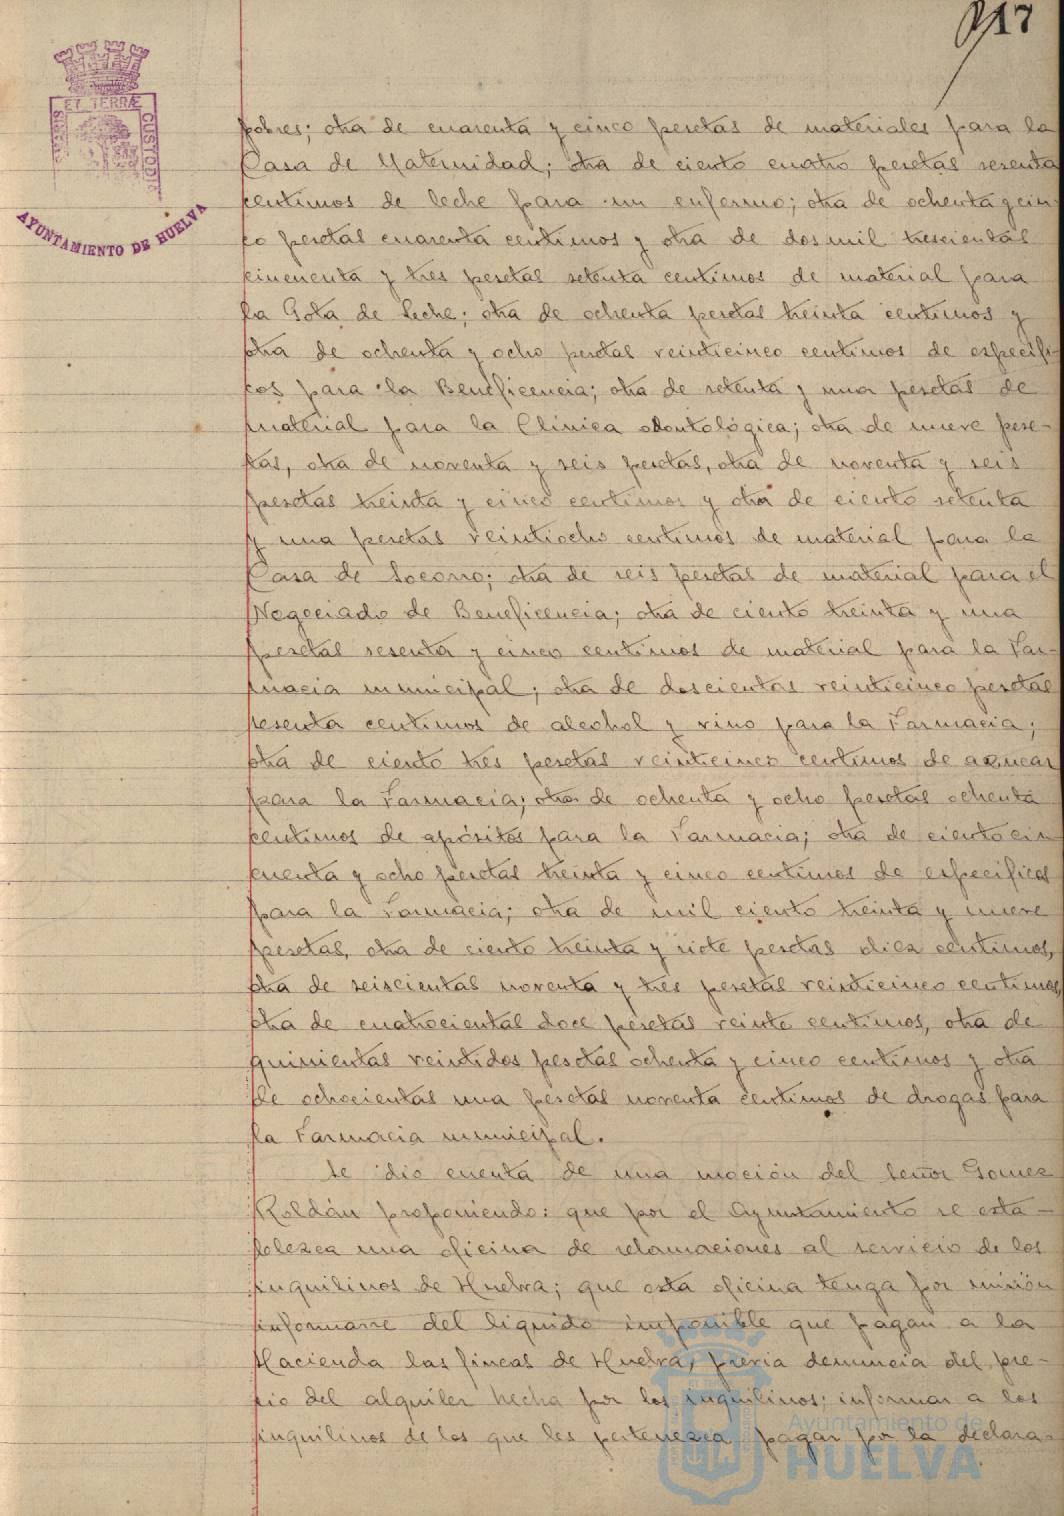 117
ET TERRÆ
PORTUS
CUSTODIA
AYUNTAMIENTO DE HUELVA
pobres; otra de cuarenta y cinco pesetas de materiales para la
Casa de Maternidad; otra de ciento cuatro pesetas sesenta
centimos de leche para un enfermo; otra de ochenta y cin-
co pesetas cuarenta centimos y otra de dos mil trescientas
cincuenta y tres pesetas setenta centimos de material para
la Gota de Leche; otra de ochenta pesetas treinta centimos y
otra de ochenta y ocho pesetas veinticinco centimos de específi-
cos para la Beneficencia; otra de setenta y una pesetas de
material para la Clínica odontológica; otra de nueve pese-
tas, otra de noventa y seis pesetas, otra de noventa y seis
pesetas treinta y cinco centimos y otra de ciento setenta
y una pesetas veintiocho centimos de material para la
Casa de Socorro; otra de seis pesetas de material para el
Negociado de Beneficencia; otra de ciento treinta y una
pesetas sesenta y cinco centimos de material para la Far-
macia municipal; otra de doscientas veinticinco pesetas
sesenta centimos de alcohol y vino para la Farmacia;
otra de ciento tres pesetas veinticinco centimos de azucar
para la Farmacia; otra de ochenta y ocho pesetas ochenta
centimos de apósitos para la Farmacia; otra de ciento cin-
cuenta y ocho pesetas treinta y cinco centimos de especificos
para la Farmacia; otra de mil ciento treinta y nueve
pesetas, otra de ciento treinta y siete pesetas diez centimos,
otra de seiscientas noventa y tres pesetas veinticinco centimos,
otra de cuatrocientas doce pesetas veinte centimos, otra de
quinientas veintidos pesetas ochenta y cinco centimos y otra
de ochocientas una pesetas noventa centimos de drogas para
la Farmacia municipal.
Se dio cuenta de una moción del Señor Gomez
Roldán proponiendo: que por el Ayuntamiento se esta-
blezca una oficina de reclamaciones al servicio de los
inquilinos de Huelva; que esta oficina tenga por misión
informarse del liquido imponible que pagan a la
Hacienda las fincas de Huelva, previa denuncia del pre-
cio del alquiler hecha por los inquilinos; informar a los
inquilinos de los que les pertenezca pagar por la declara-
Ayuntamiento de
HUELVA